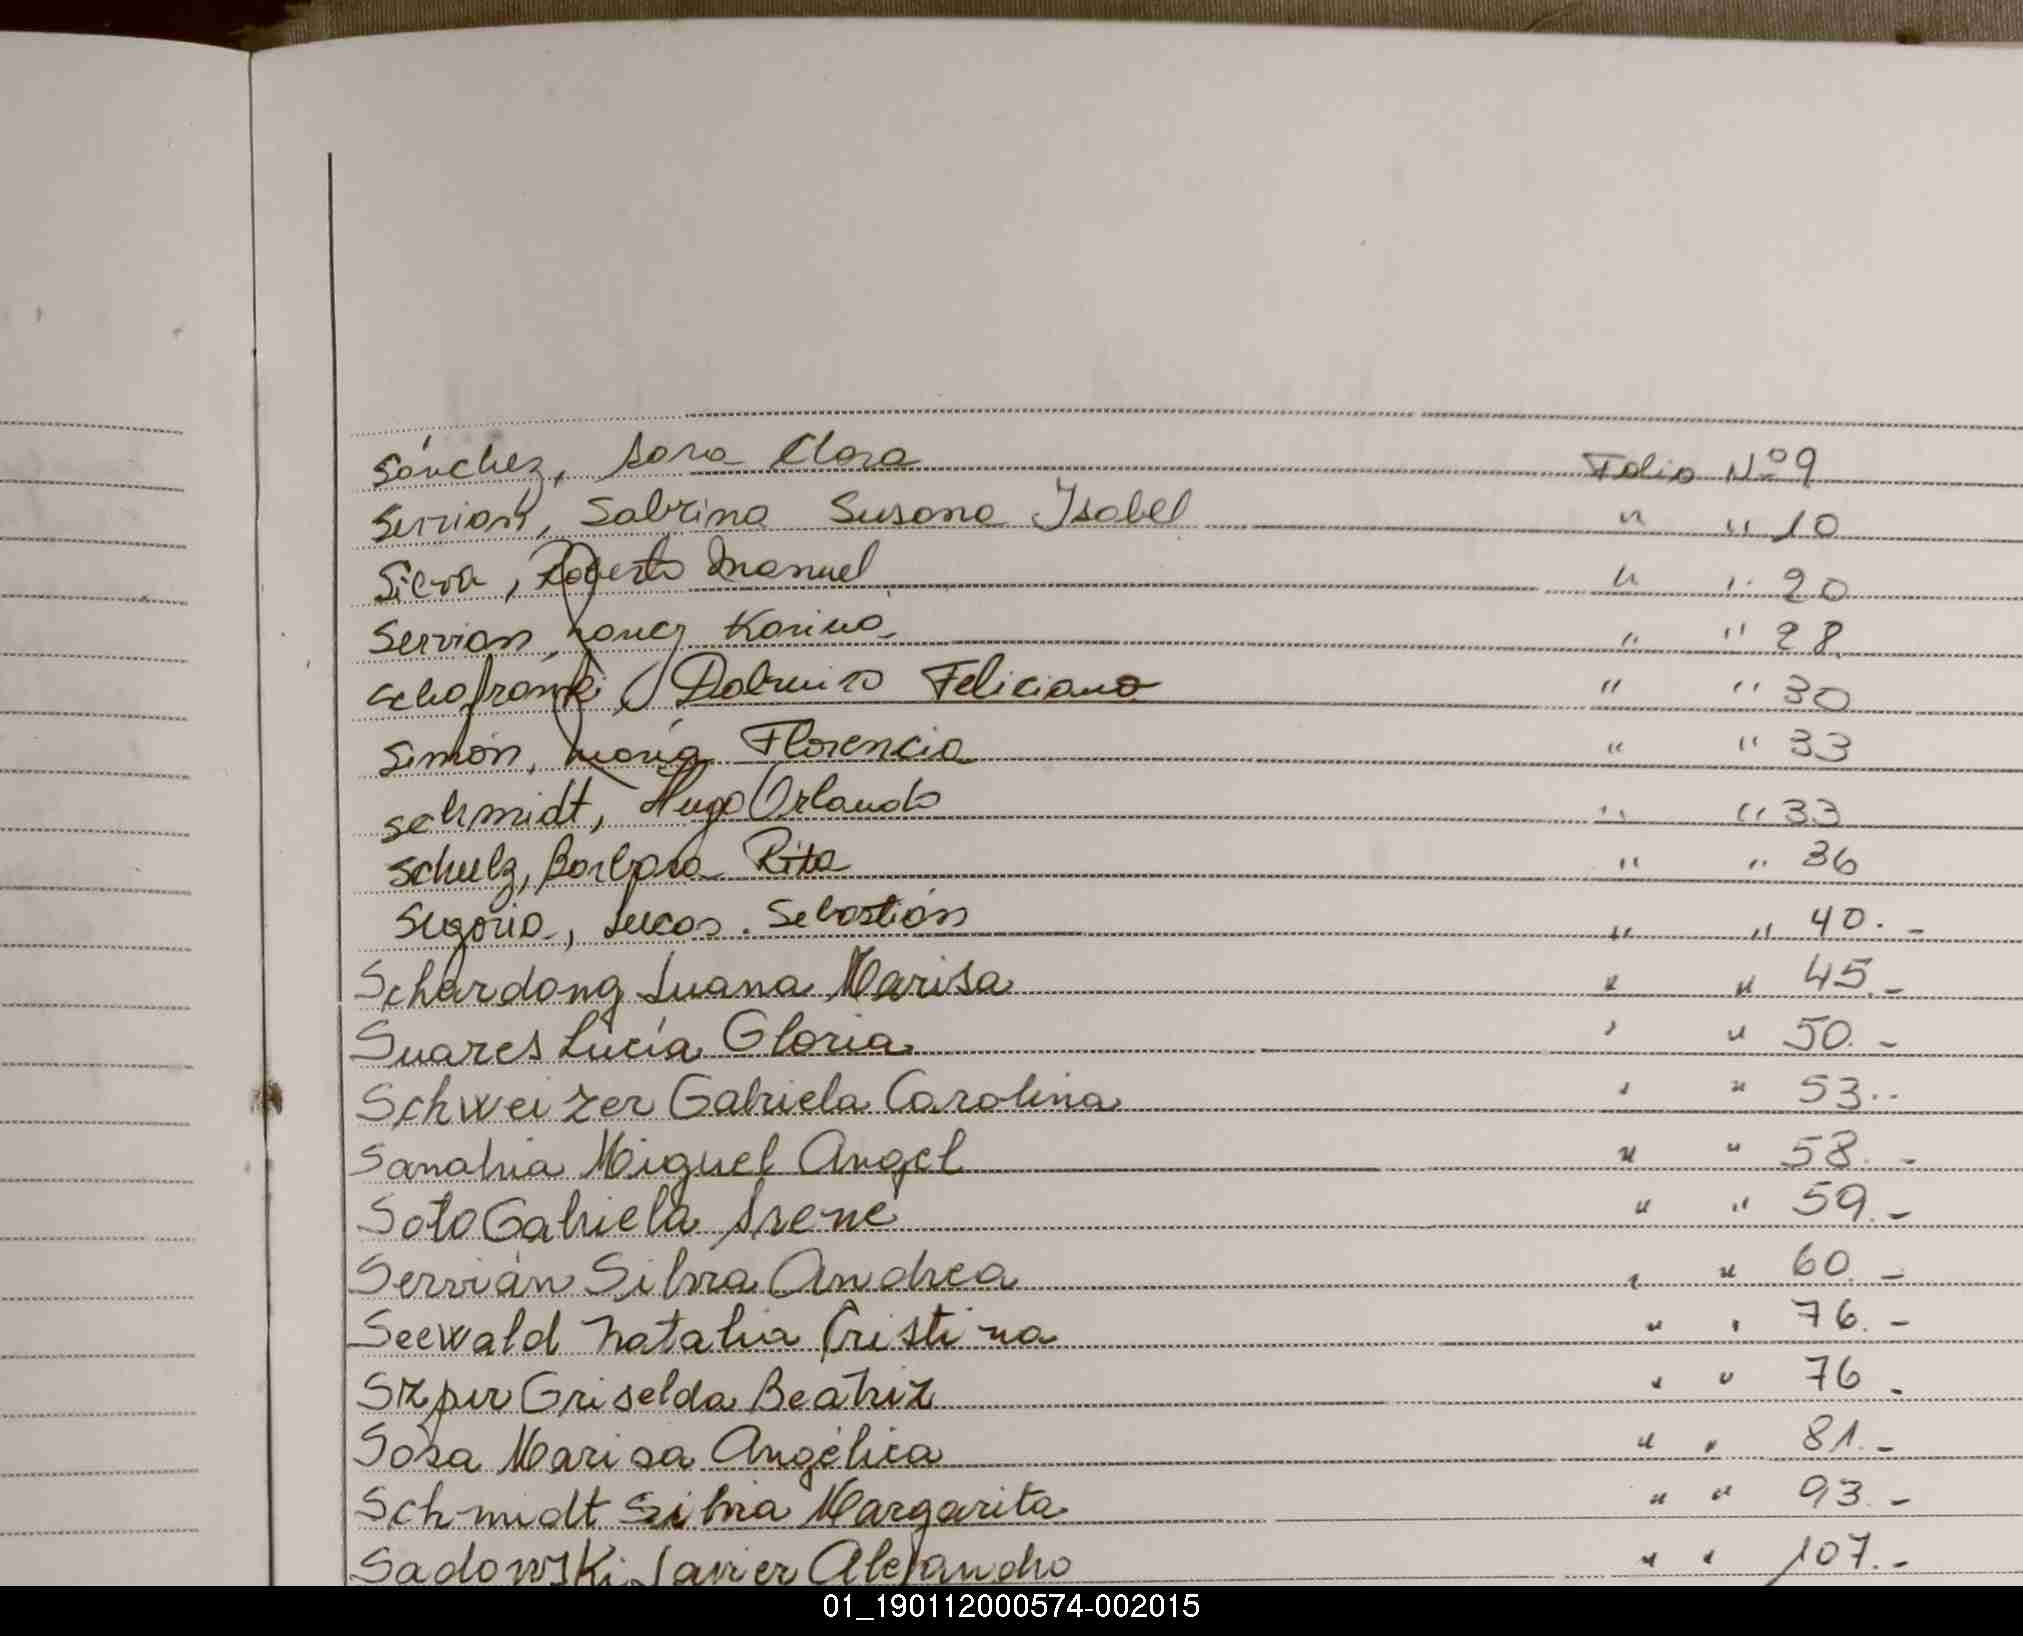 Sánchez, Sara Clara Folio Nº 9
Servian, Sabrina Susana Isabel " " 10
Silva, Roberto Manuel " " 20
Servian, Nancy Karina " " 28.
Feliciano " " 30
Simón, María Florencia " " 33
Schmidt, Hugo Orlando " " 33
Schulz, Barbara Rita " " 36
Segovia, Lucas Sebastián " " 40.-
Schardong Luana Marisa " " 45.-
Suares Lucía Gloria " " 50.-
Schweizer Gabriela Carolina " " 53..
Sanabria Miguel Angel " " 58.-
Soto Gabriela Irene " " 59.-
Servián Silvia Andrea " " 60.-
Seewald Natalia Cristina " " 76.-
Griselda Beatriz " " 76.
Sosa Marisa Angélica " " 81.-
Schmidt Silvia Margarita " " 93.-
Sadowski Javier Alejandro " " 107.-
01_190112000574-002015